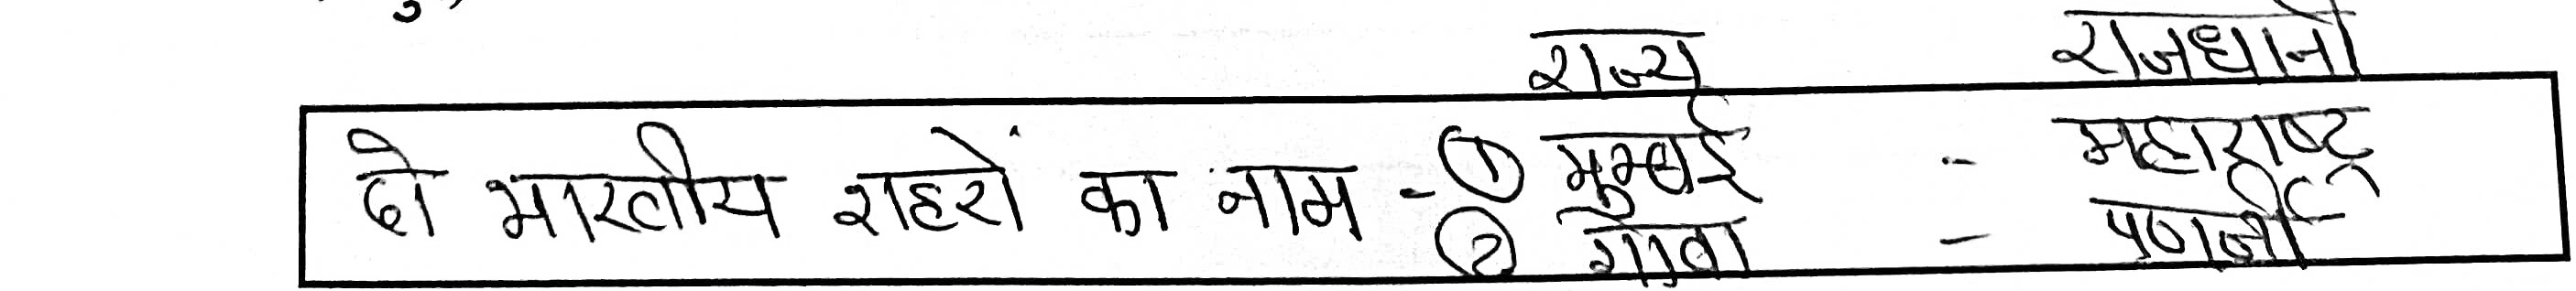 राज्य राजधानी
दो भारतीय शहरों का नाम - ① मुम्बई - महाराष्ट्र
② गोवा - पणजी